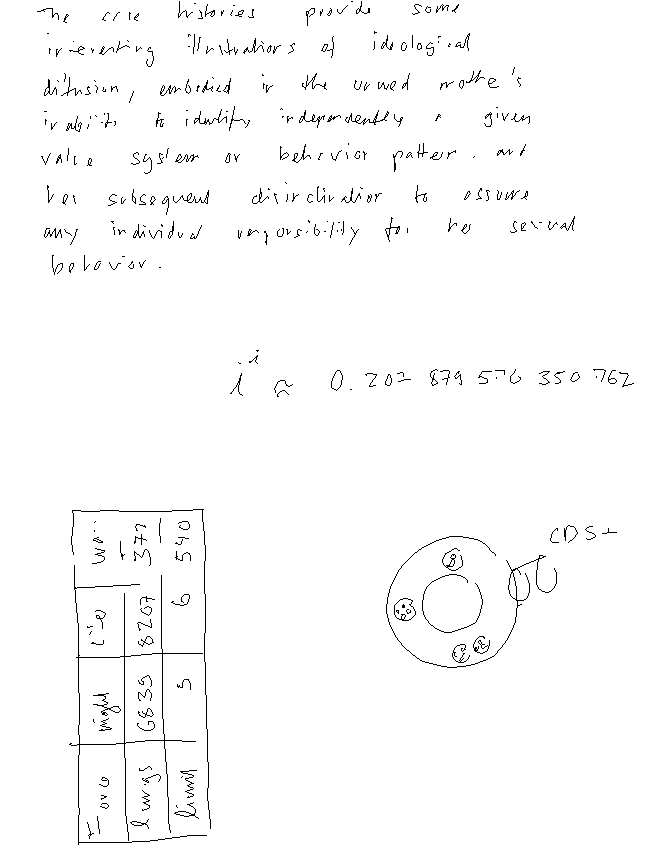 The case histories provide some
interesting illustrations of ideological
diffusion, embodied in the unwed mother's
inability to identify independently a given
value system or behavior pattern, and
her subsequent disinclination to assume
any individual responsibility for her sexual
behavior.
i^i ≈ 0.207 879 576 350 762
night
lungs 6839 8207 377
limit 5 6 540
CD5+